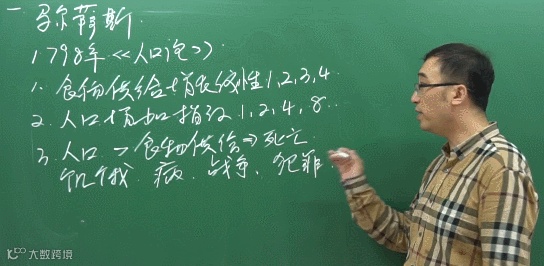 一 马尔萨斯.
1798年《人口论》
1. 食物供给增长线性1,2,3,4
2. 人口增加指数1,2,4,8..
3. 人口 > 食物供给⇒死亡.
饥饿. 病. 战争、犯罪.
大数跨境